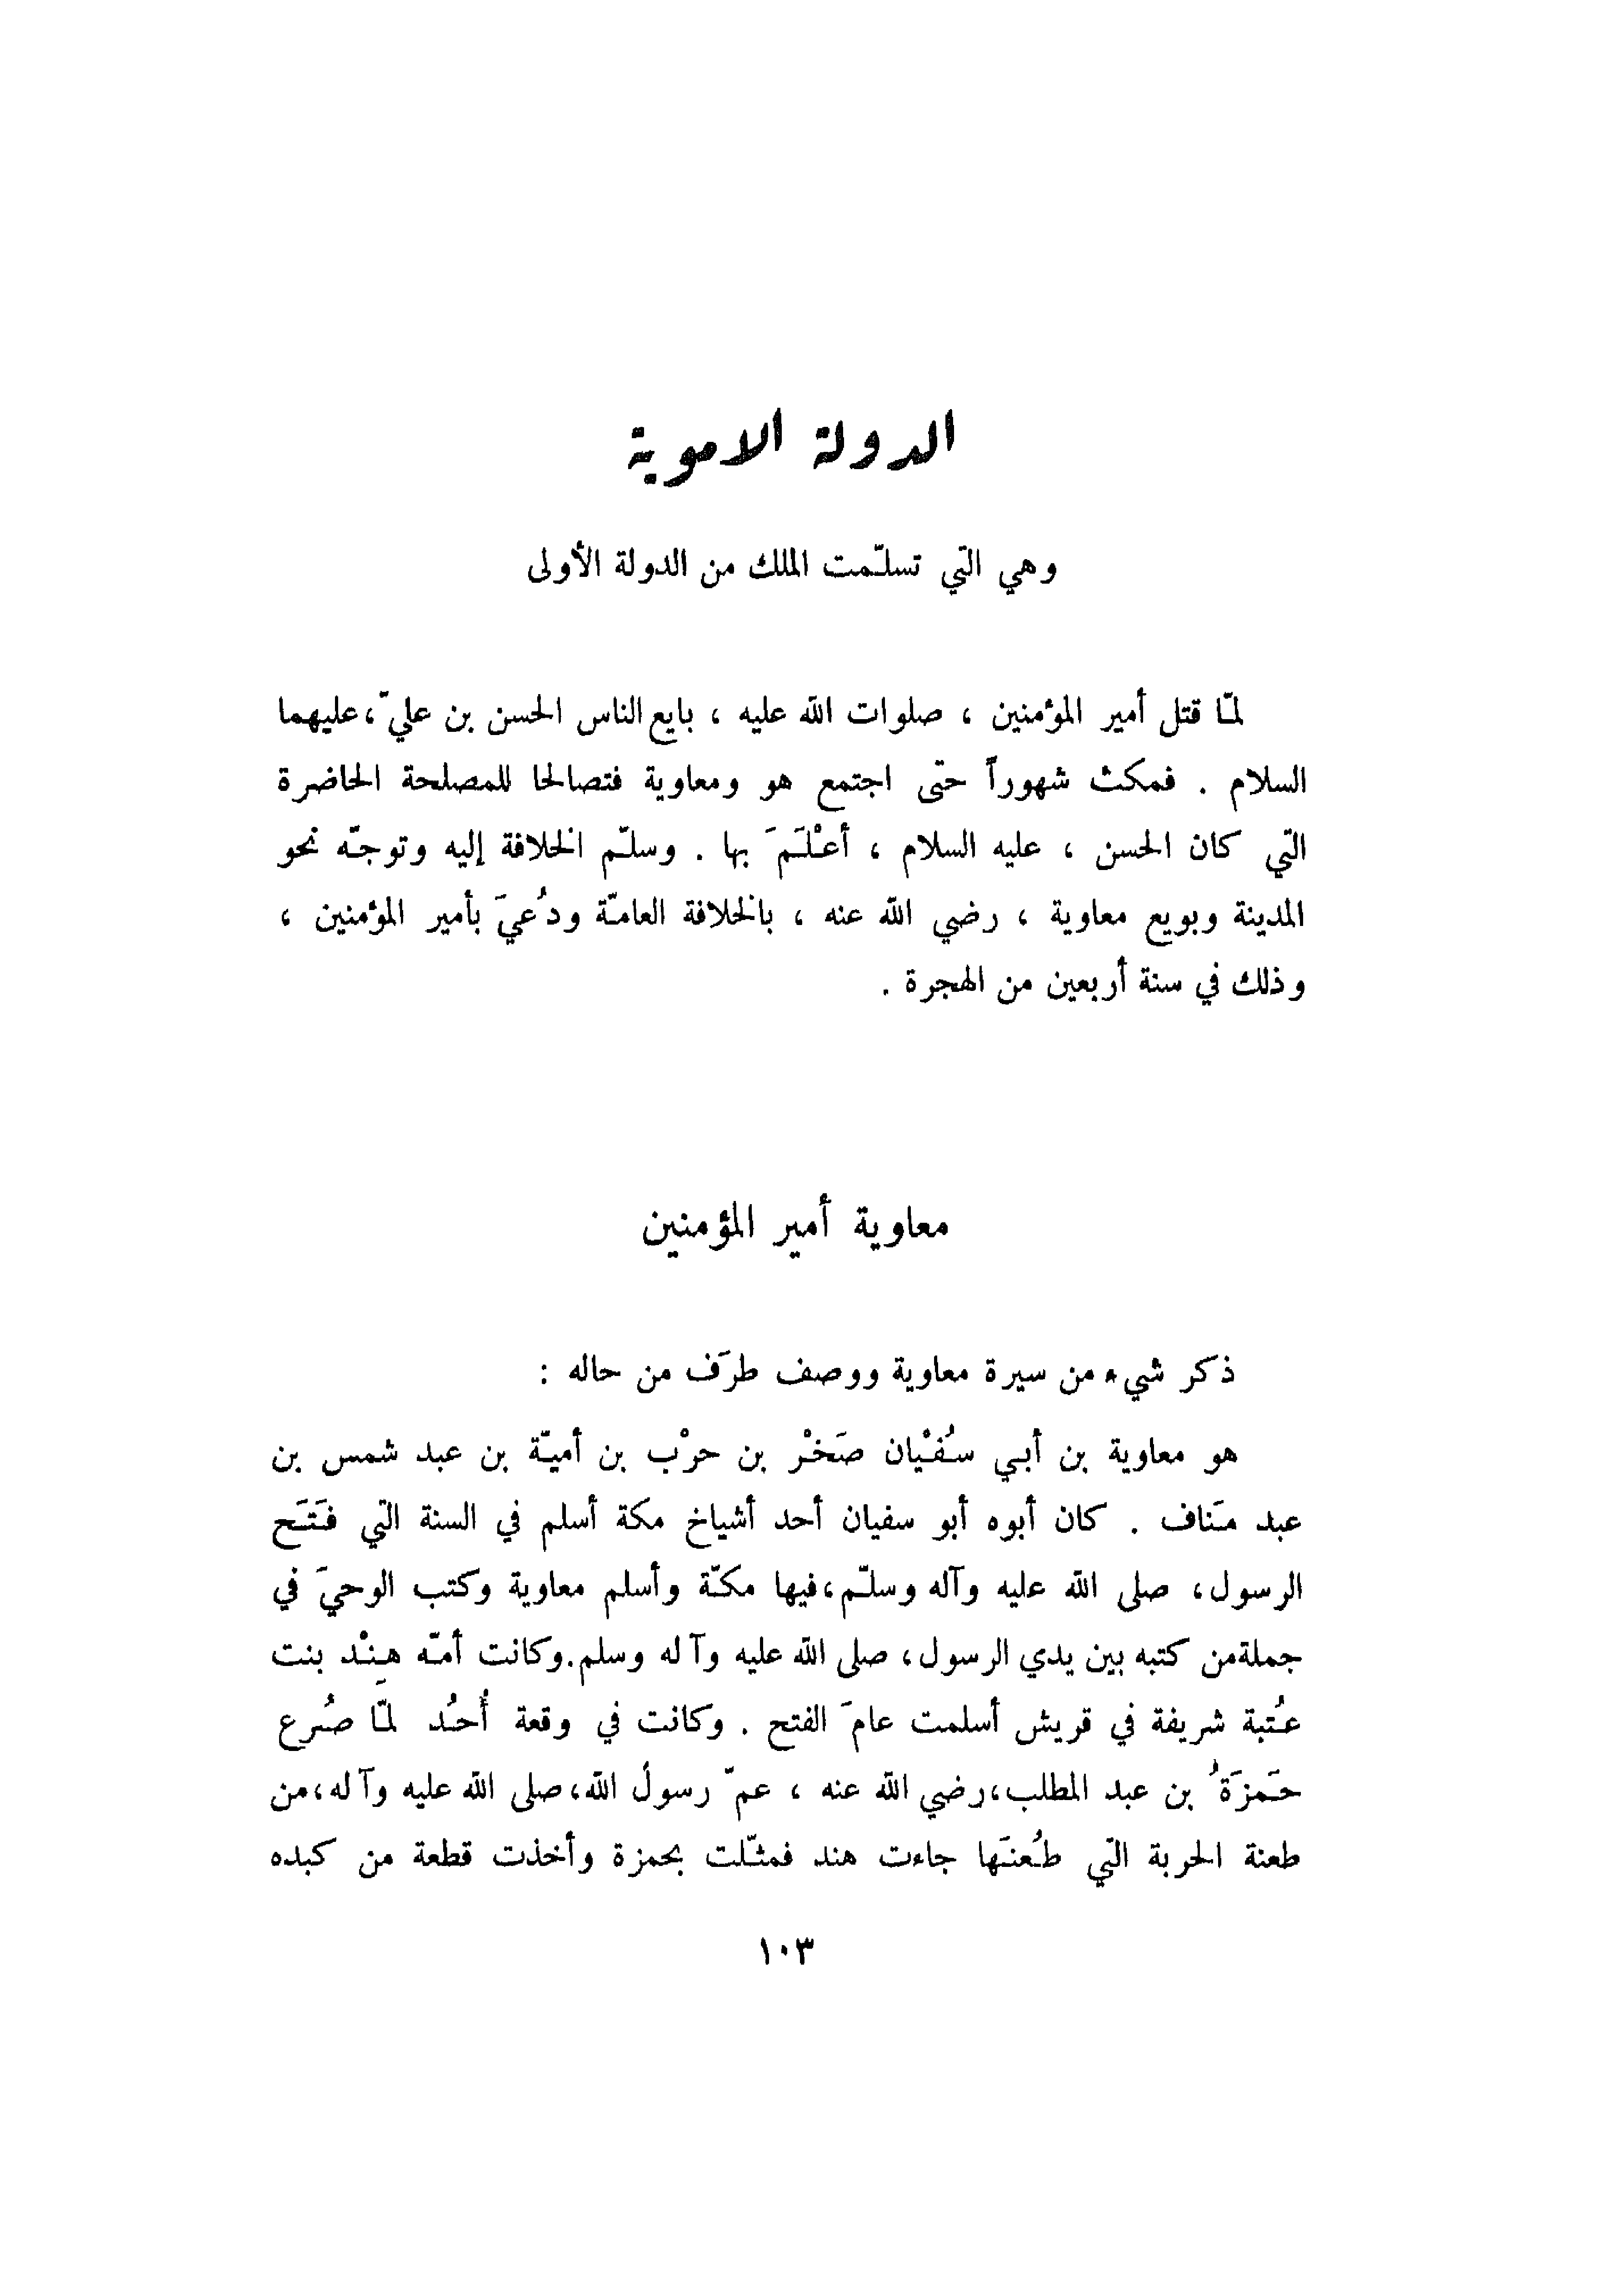 الدولة الاموية
وهي التّي تسلّمت الملك من الدولة الأولى
لمّا قتل أمير المؤمنين ، صلوات الله عليه ، بايع الناس الحسن بن عليّ ، عليهما
السلام . فمكث شهوراً حتّى اجتمع هو ومعاوية فتصالحا للمصلحة الحاضرة
التّي كان الحسن ، عليه السلام ، أعْلَمَ بها . وسلّم الخلافة إليه وتوجّه نحو
المدينة وبويع معاوية ، رضي الله عنه ، بالخلافة العامّة ودُعيَ بأمير المؤمنين ،
وذلك في سنة أربعين من الهجرة .
معاوية أمير المؤمنين
ذكر شيء من سيرة معاوية ووصف طرَف من حاله :
هو معاوية بن أبي سُفْيان صَخْر بن حرْب بن أميّة بن عبد شمس بن
عبد مَناف . كان أبوه أبو سفيان أحد أشياخ مكة أسلم في السنة التّي فَتَح
الرسول ، صلى الله عليه وآله وسلّم ، فيها مكّة وأسلم معاوية وكتب الوحيَ في
جملة من كتبه بين يدي الرسول ، صلى الله عليه وآله وسلم . وكانت أمّه هِنْد بنت
عُتبة شريفة في قريش أسلمت عامَ الفتح . وكانت في وقعة أُحُد لمّا صُرع
حَمزَةُ بن عبد المطلب ، رضي الله عنه ، عمّ رسول الله ، صلى الله عليه وآله ، من
طعنة الحربة التّي طُعنَها جاءت هند فمثّلت بحمزة وأخذت قطعة من كبده
١٠٣